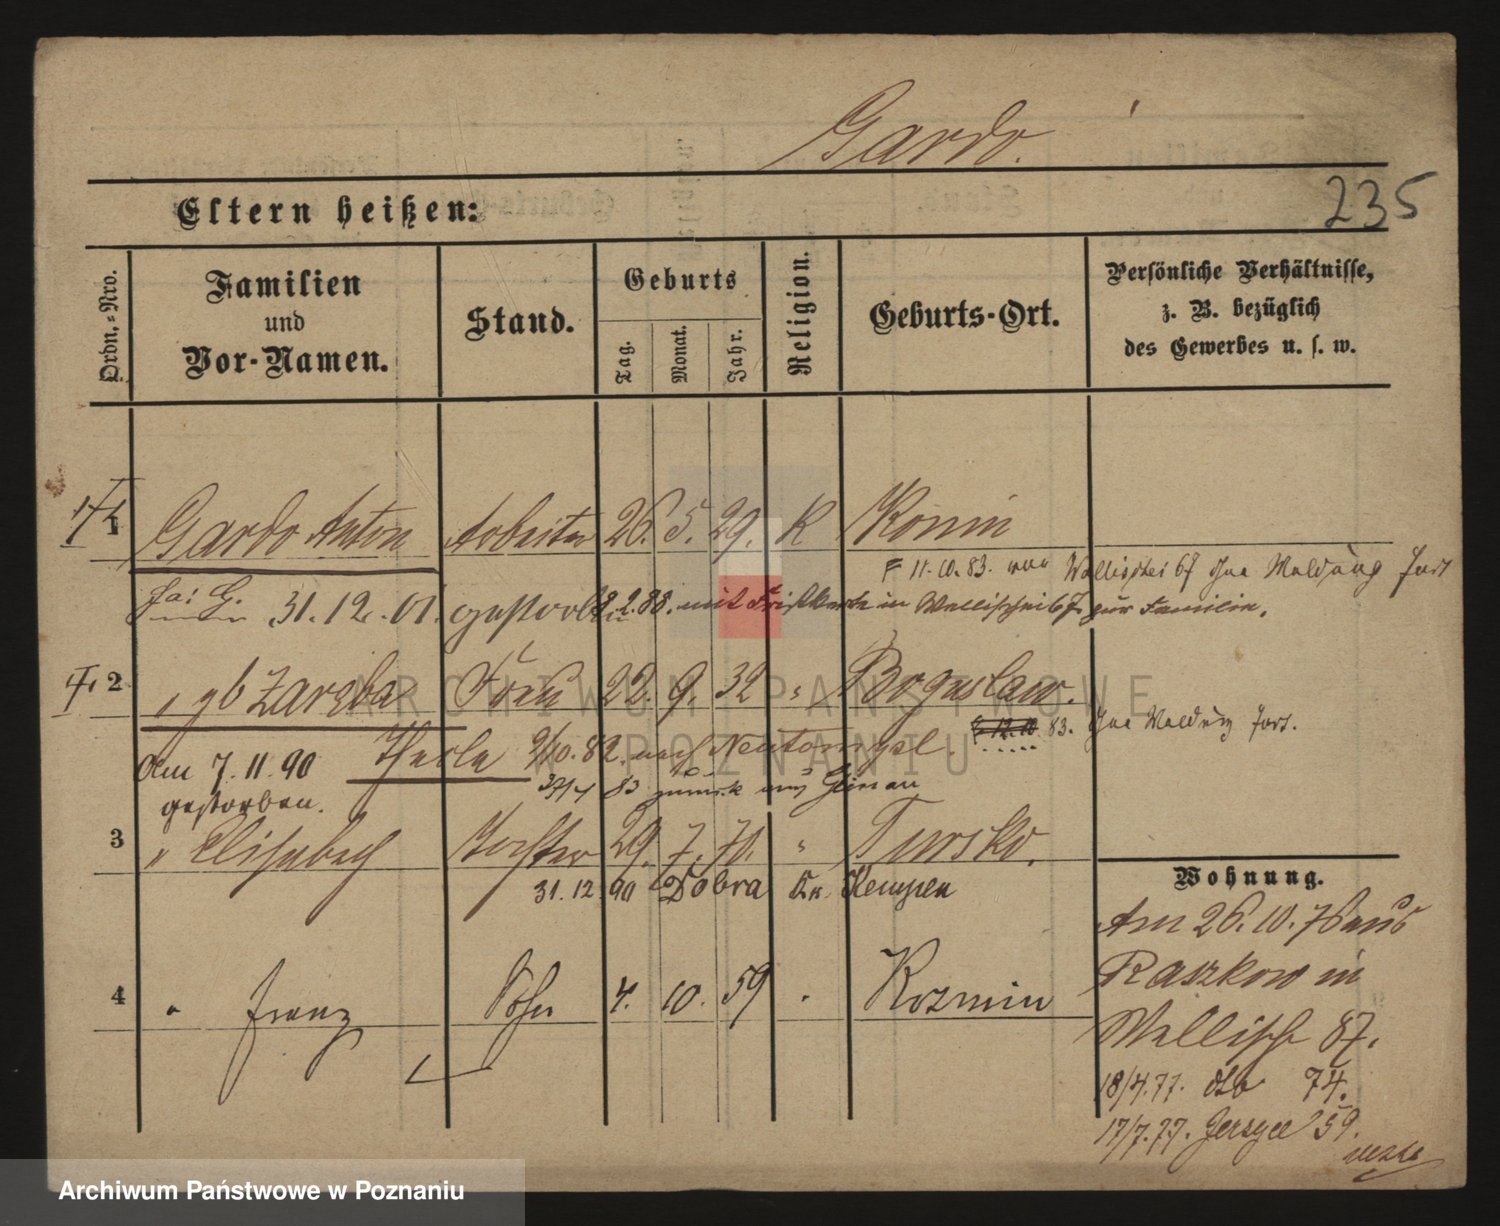 Gardo.
235
Eltern heißen:
Ordn.-Nro.
Familien
und
Vor-Namen.
Stand.
Geburts
Tag.
Monat.
Jahr.
Religion.
Geburts-Ort.
Persönliche Verhältnisse,
z. B. bezüglich
des Gewerbes u. s. w.
1 Gardo Anton Arbeiter 26. 5. 29. K Konin
11.10.83. von Wallischei 67 ohne Meldung fort
G. 31.12.01. gestorben 2.88. mit in Wallischei 67 zur Familie.
2 " gb Zareba Frau 22. 9. 32 " Boguslaw.
12.10 83. ohne Meldung fort.
Am 7.11.90 Thecla 9/10.82. nach Neutomysl
gestorben. 83 zurück aus
3 " Elisabeth Tochter 29. 7. 70. " Tursko.
31.12.90 Dobra Kr. Kempen
4 " Franz Sohn 4. 10. 59 " Kozmin
Wohnung.
Am 26.10.76 aus
Raszkow in
Wallisch 87.
18/4.77. dto 74.
17/7.77. Jersyce 59.
ARCHIWUM PAŃSTWOWE
W POZNANIU
Archiwum Państwowe w Poznaniu